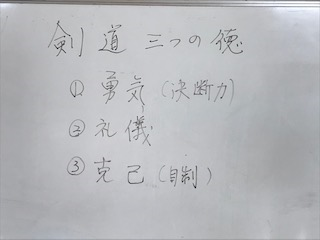 剣道 三つの徳
① 勇気 (決断力)
② 礼儀
③ 克己 (自制)